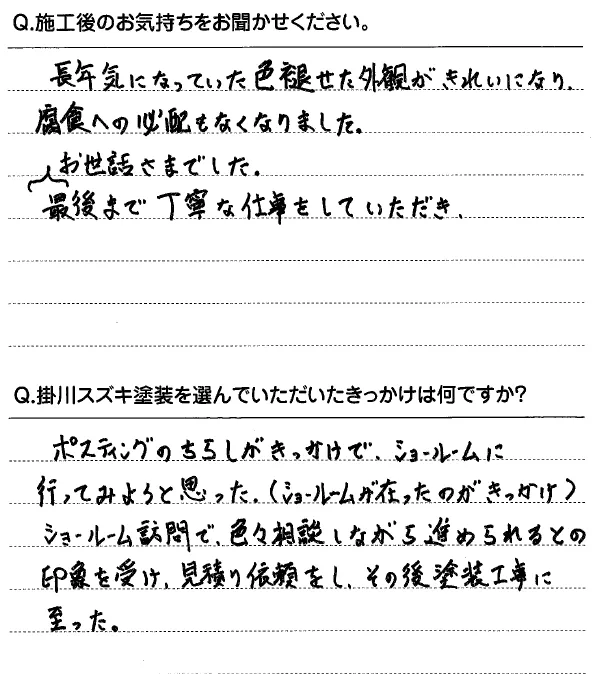 Q.施工後のお気持ちをお聞かせください。
長年気になっていた色褪せた外観がきれいになり、
腐食への心配もなくなりました。
お世話さまでした。
最後まで丁寧な仕事をしていただき、
Q.掛川スズキ塗装を選んでいただいたきっかけは何ですか?
ポスティングのちらしがきっかけで、ショールームに
行ってみようと思った。(ショールームが在ったのがきっかけ)
ショールーム訪問で、色々相談しながら進められるとの
印象を受け、見積り依頼をし、その後塗装工事に
至った。